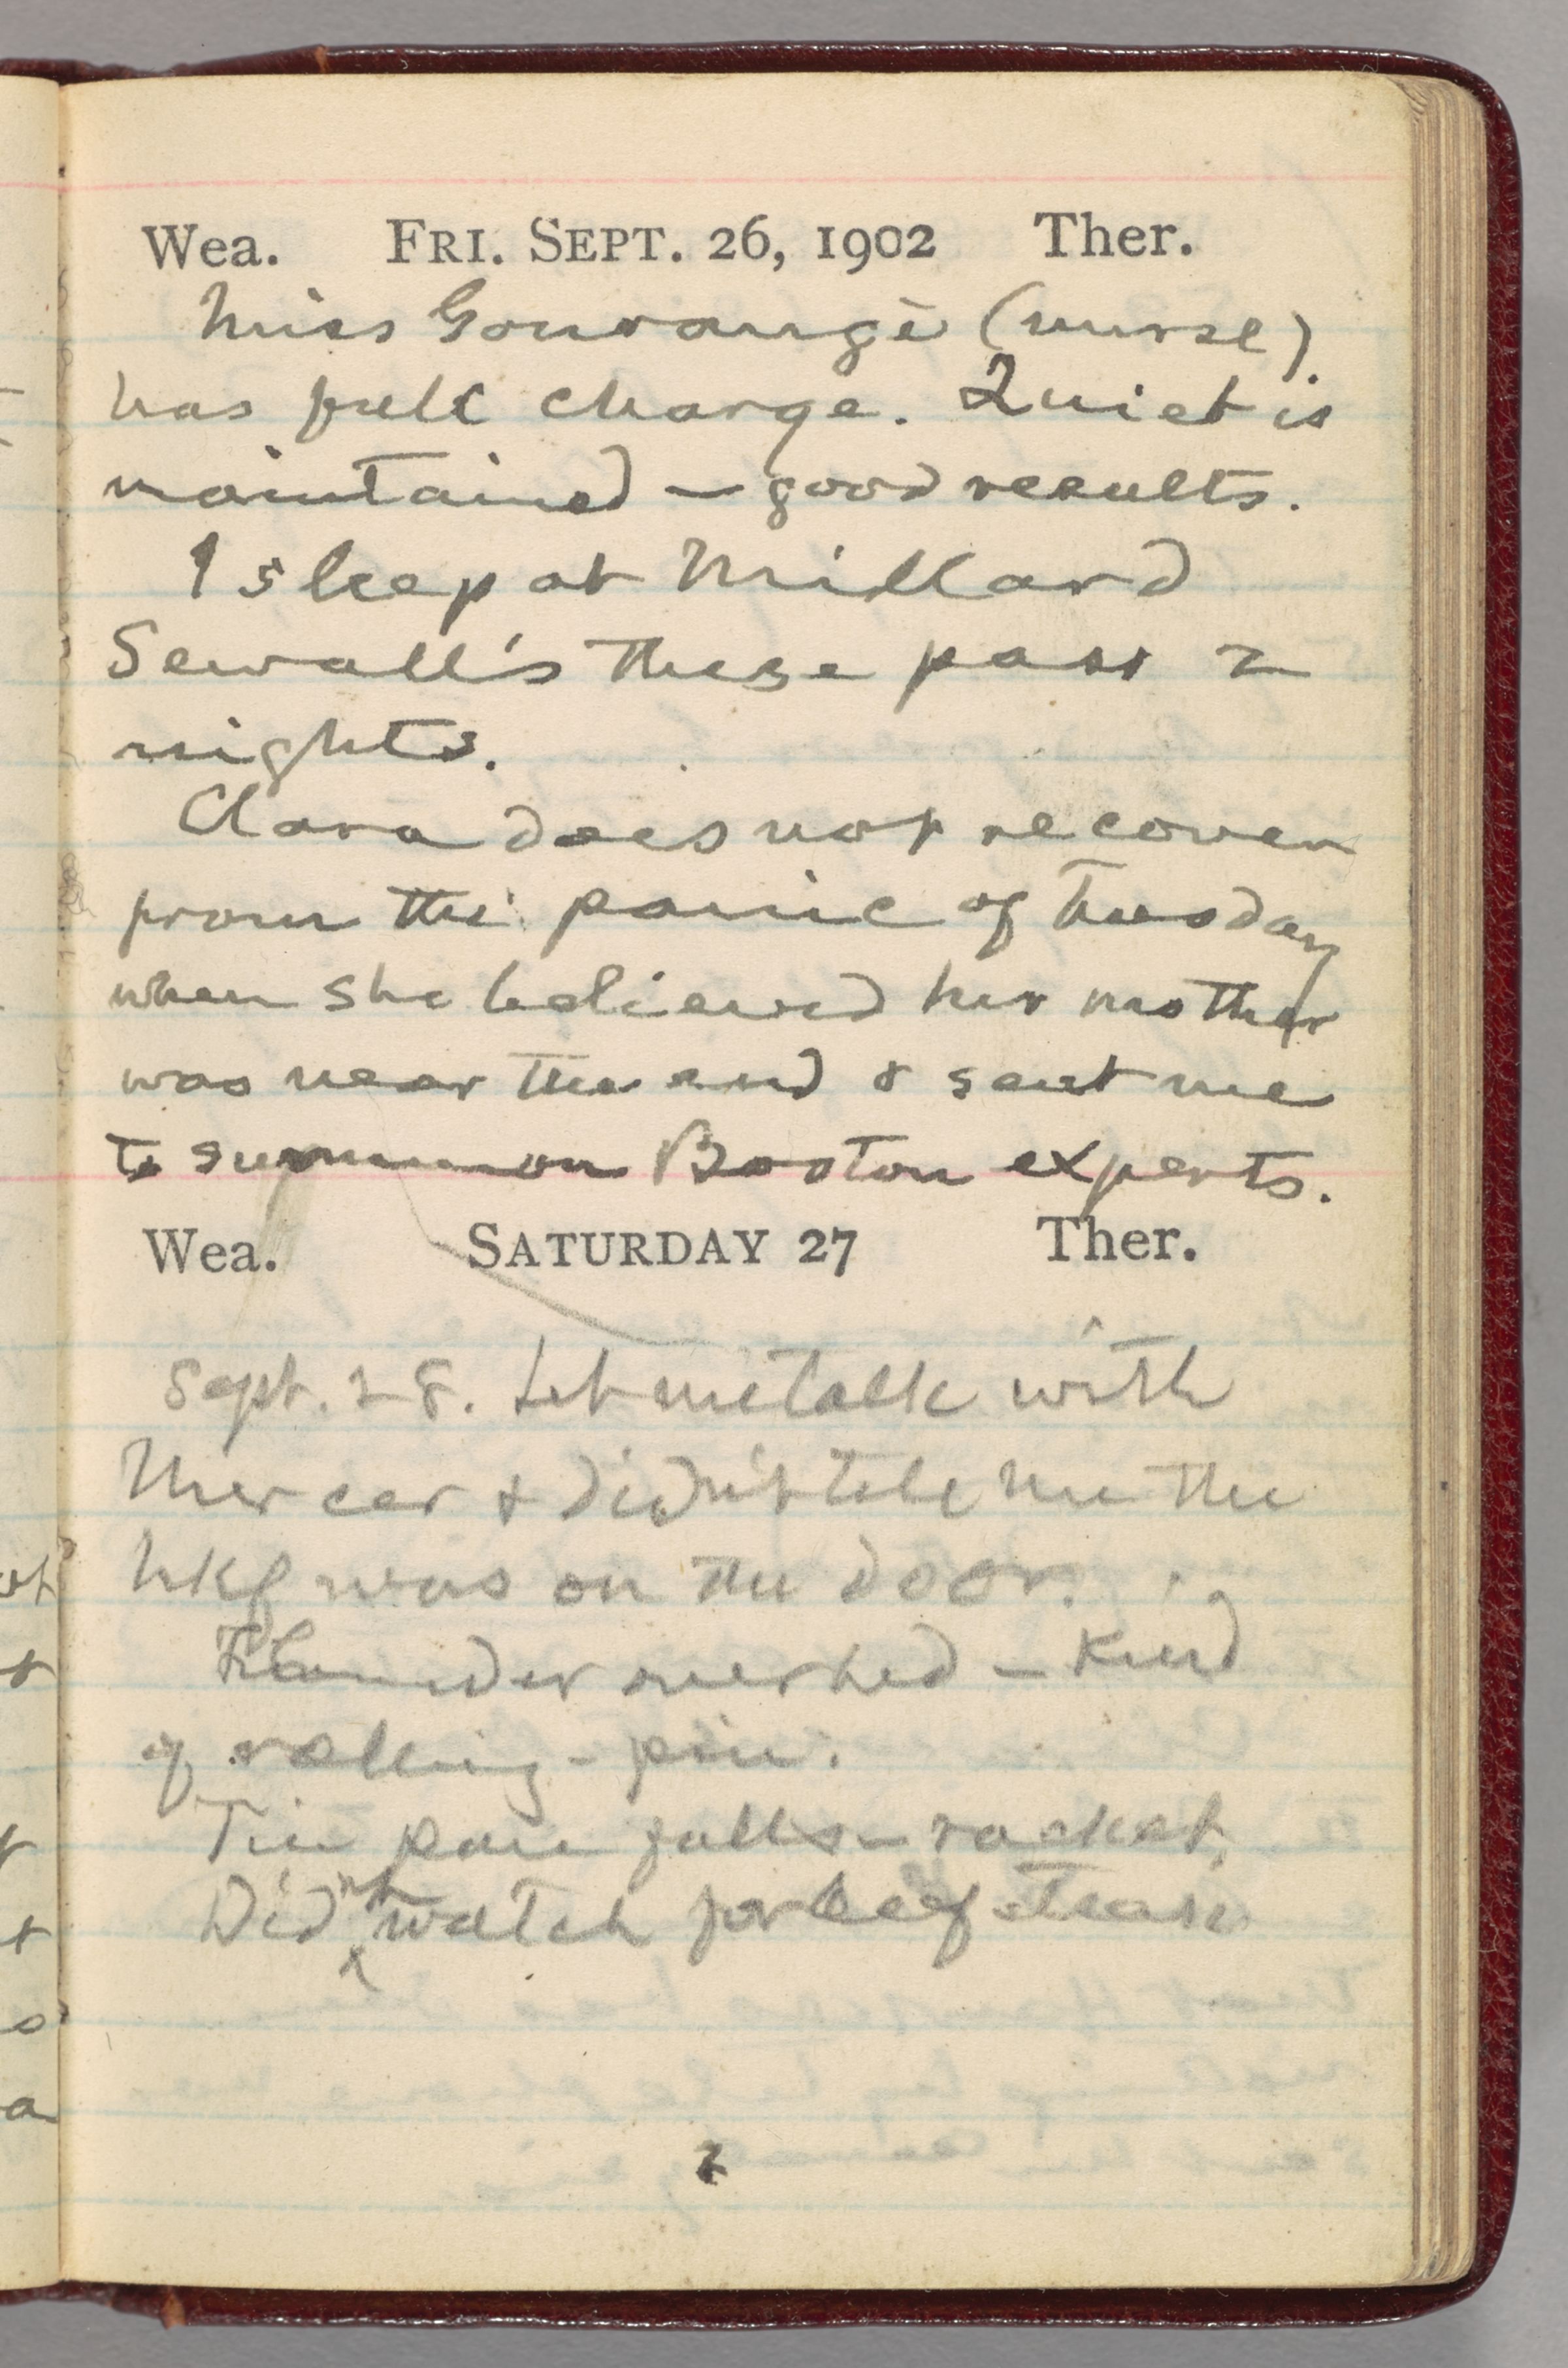 Wea. FRI. SEPT. 26, 1902 Ther.
Miss Gourangè (nurse)
has full charge. Quiet is
maintained — good results.
I sleep at Millard
Sewall's these past 2
nights.
Clara does not recover
from the panic of Tuesday
when she believed her mother
was near the end & sent me
to summon Boston experts.
Wea. SATURDAY 27 Ther.
Sept. 28. Let me talk with
Mercer & didn't tell me the
was on the door.
Thunder overhed — kind
of rolling-pin.
Tin pan falls — racket,
Didn't watch for beef
2